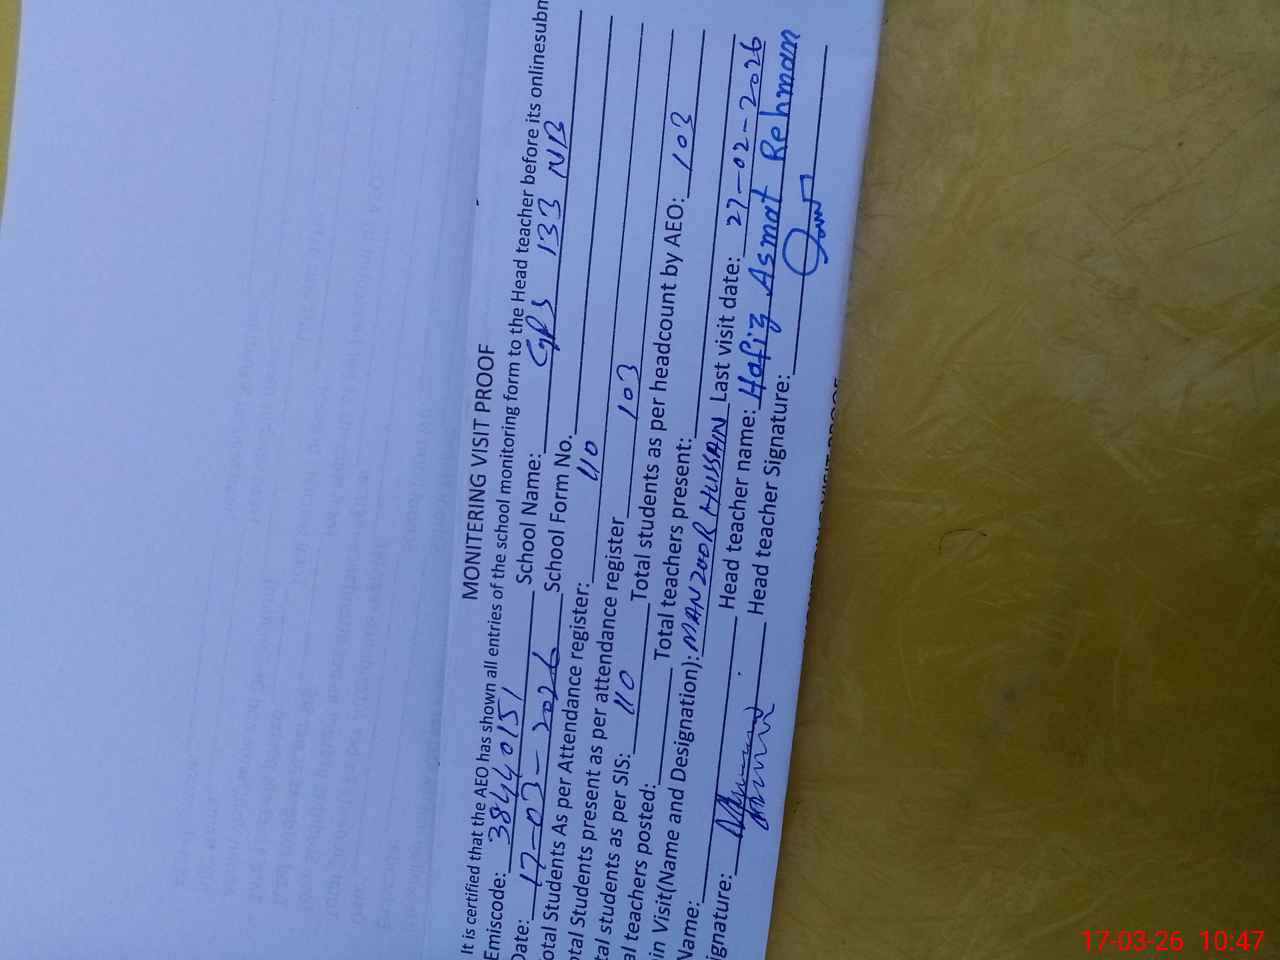 MONITERING VISIT PROOF
It is certified that the AEO has shown all entries of the school monitoring form to the Head teacher before its onlinesubm
Emiscode: 38440151 School Name: GPS 133 NB
Date: 17-03-2026 School Form No.
otal Students As per Attendance register: 110
otal Students present as per attendance register 103
tal students as per SIS: 110 Total students as per headcount by AEO: 103
al teachers posted: Total teachers present:
in Visit(Name and Designation): MANZOOR HUSSAIN Last visit date: 27-02-2026
Name: Head teacher name: Hafiz Asmat Rehman
ignature: Head teacher Signature:
17-03-26 10:47